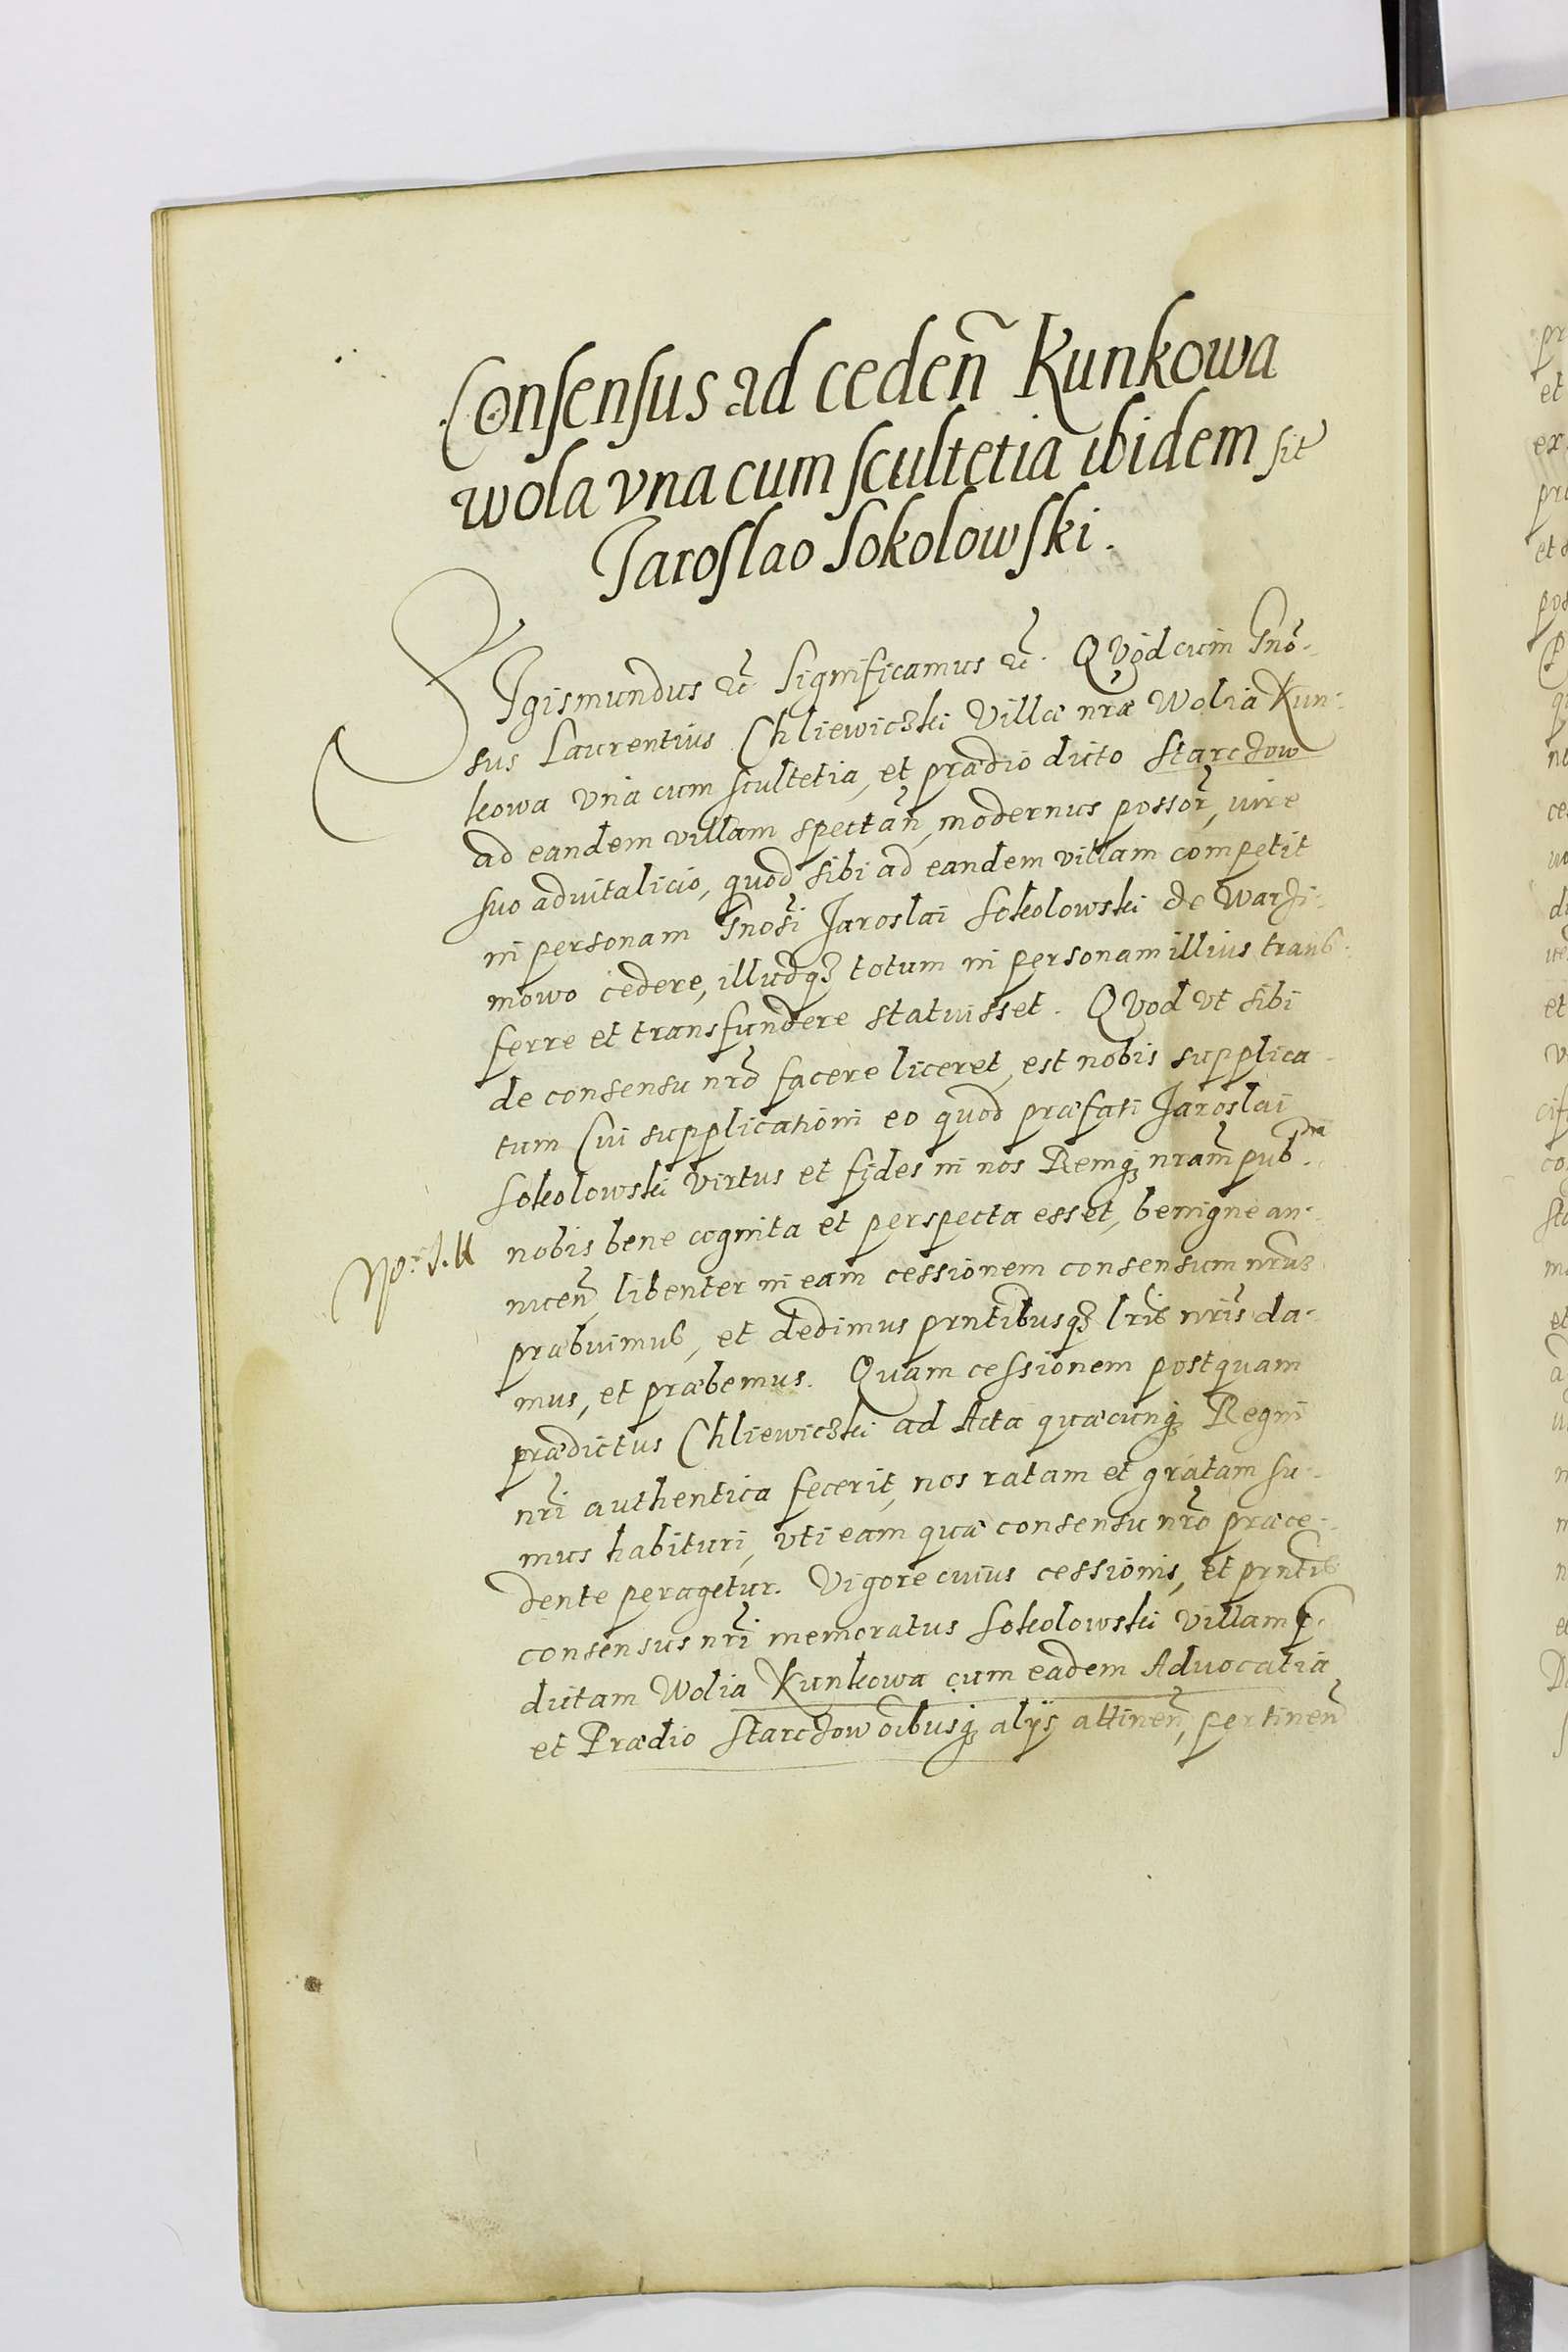 Consensus ad cedeñ Kunkowa
wola vna cum scultetia ibidem sit
Jaroslao Sokolowski.
SIgismundus &c̃ Significamus &c̃. QVod cum Gnõ-
sus Laurentius Chliewiczki Villæ nr̃æ Wolia Kun-
kowa vna cum scultetia, et prædio dicto Starczow
ad eandem villam spectañ, modernus possor̃, iure
suo aduitalicio, quod sibi ad eandem villam competit
in personam Gnosĩ Jaroslai Sokolowski de Warzi-
mowo cedere, illudqȝ totum in personam illius trans-
ferre et transfundere statuisset. QVod vt sibi
de consensu nr̃o facere liceret, est nobis supplica-
tum Cui supplicationi eo quod præfati Jaroslai
Sokolowski virtus et fides in nos Remqȝ nram̃ pub.
nobis bene cognita et perspecta esset, benigne an-
nuceñ libenter in eam cessionem consensum nrũ
præbuimus, et dedimus prntibusqȝ lris nris̃ da-
mus, et præbemus. Quam cessionem postquam
prædictus Chliewiczki ad Acta quæcunqȝ Regni
nrĩ authentica fecerit, nos ratam et gratam su-
mus habituri, vti eam quæ consensu nrõ præce-
dente peragetur. Vigore cuius cessionis, et prntis
consensus nrĩ memoratus Sokolowski villam p-
dictam Wolia Kunkowa cum eadem Aduocatia
et Prædio Starczow oĩbusqȝ alijs attineñ, pertineñ